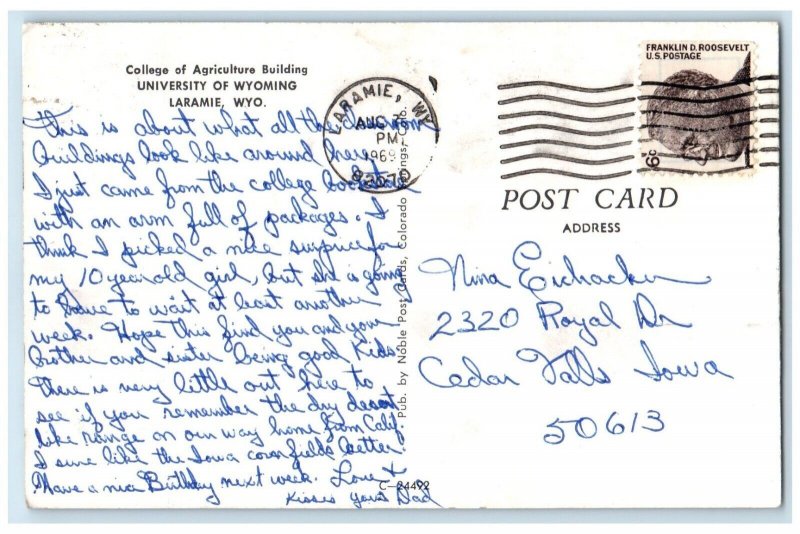 College of Agriculture Building
UNIVERSITY OF WYOMING
LARAMIE, WYO.
This is about what all the classroom
buildings look like around here.
I just came from the college bookstore
with an arm full of packages. I
think I picked a nice surprise for
my 10 year old girl, but she is going
to have to wait at least another
week. Hope this find you and your
brother and sister being good kids.
There is very little out here to
see if you remember the dry desert
like range on our way home from Calif.
I sure like the Iowa cornfields better.
Have a nice Birthday next week. Love &
Kisses your Dad
C-24492
Pub. by Noble Post Cards, Colorado Springs, Colo.
LARAMIE, WY
AUG
PM
1969
FRANKLIN D. ROOSEVELT
U.S. POSTAGE
6c
POST CARD
ADDRESS
Nina Eichacker
2320 Royal Dr
Cedar Falls Iowa
50613